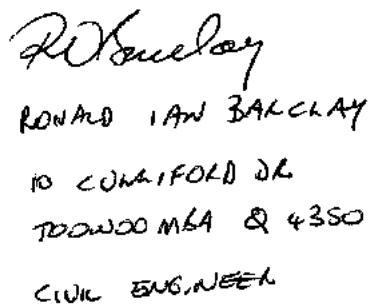 RI Barclay
RONALD IAN BARCLAY
10 CURRIFORD DR
TOOWOOMBA Q 4350
CIVIL ENGINEER